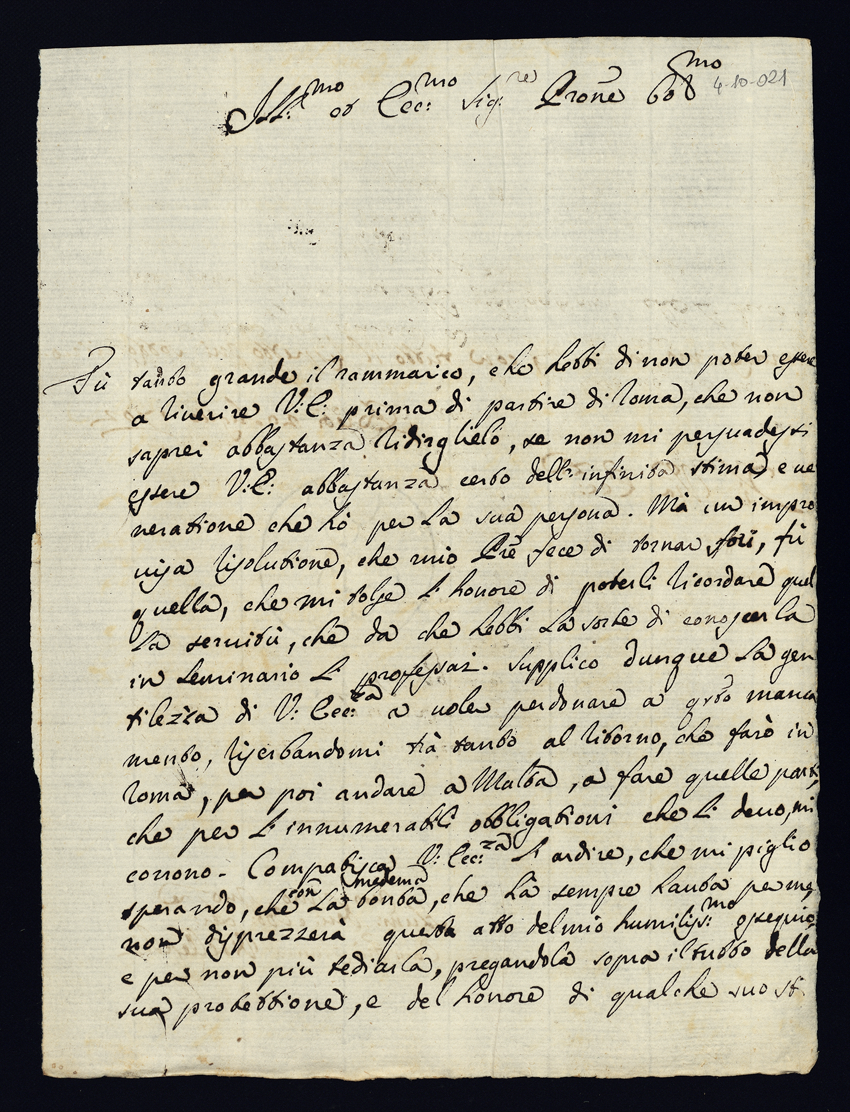 Ill:mo et Ecc:mo Sig:re Prone Col:mo 4-10-921
Fù tanto grande il rammarico, che hebbi di non poter essere
a riverire V:E: prima di partire di Roma, che non
saprei abbastanza ridirglielo, se non mi persuadessi
essere V:E: abbastanza certo dell' infinita stima, e ve
neratione che hò per la sua persona. Mà un impro
visa risolutione, che mio Pre fece di tornar fori, fù
quella, che mi tolse l' honore di poterli ricordare quel
la servitù, che da che hebbi la sorte di conoscerla
in seminario li professai. Supplico dunque la gen
tilezza di V: Ecc:za a voler perdonare a qsto manca
mento, riserbandomi trà tanto al ritorno, che farò in
Roma, per poi andare a Malta, a fare quelle parti,
che per l' innumerabili obbligationi che li devo, mi
corrono. Compatisca V: Ecc:za l' ardire, che mi piglio
sperando, che con la medema bontà, che hà sempre hauta per me,
non disprezzerà questo atto del mio humiliss:mo ossequio,
e per non più tediarla, pregandola sopra il tutto della
sua protettione, e del honore di qualche suo st.